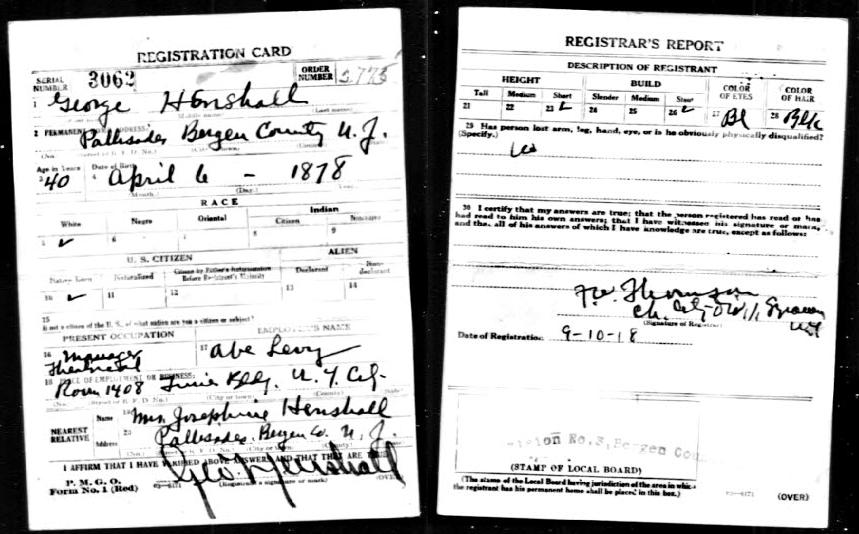 REGISTRATION CARD
SERIAL NUMBER 3062 ORDER NUMBER 2775
1 George Henshall
2 PERMANENT HOME ADDRESS:
Pallisades Bergen County N. J.
Age in Years Date of Birth
3 40 4 April 6 - 1878
(Month.) (Day.) (Year.)
RACE
White Negro Oriental Indian
Citizen Noncitizen
5 ✓ 6 7 8 9
U. S. CITIZEN ALIEN
Native Born Naturalized Citizen by Father's Naturalization Before Registrant's Majority Declarant Non-declarant
10 ✓ 11 12 13 14
15
If not a citizen of the U. S., of what nation are you a citizen or subject?
PRESENT OCCUPATION EMPLOYER'S NAME
16 Manager Theatrical 17 Abe Levy
18 PLACE OF EMPLOYMENT OR BUSINESS:
Room 1408 Bldg. N. Y. City
(No.) (Street or R. F. D. No.) (City or town) (County) (State)
NEAREST RELATIVE Name 19 Mrs. Josephine Henshall
Address 20 Pallisades Bergen Co. N. J.
(No.) (Street or R. F. D. No.) (City or town)
I AFFIRM THAT I HAVE VERIFIED ABOVE ANSWERS AND THAT THEY ARE TRUE
P. M. G. O.
Form No. 1 (Red) Geo Henshall
(Registrant's signature or mark) (OVER)
REGISTRAR'S REPORT
DESCRIPTION OF REGISTRANT
HEIGHT BUILD COLOR OF EYES COLOR OF HAIR
Tall Medium Short Slender Medium Stout
21 22 23 ✓ 24 25 26 ✓ 27 Bl 28 Blk
29 Has person lost arm, leg, hand, eye, or is he obviously physically disqualified?
(Specify.)
30 I certify that my answers are true; that the person registered has read or has
had read to him his own answers; that I have witnessed his signature or mark,
and that all of his answers of which I have knowledge are true, except as follows:
(Signature of Registrar)
Date of Registration 9-10-18
No. 3, Bergen
(STAMP OF LOCAL BOARD)
(The stamp of the Local Board having jurisdiction of the area in which
the registrant has his permanent home shall be placed in this box.)
03—6171 (OVER)